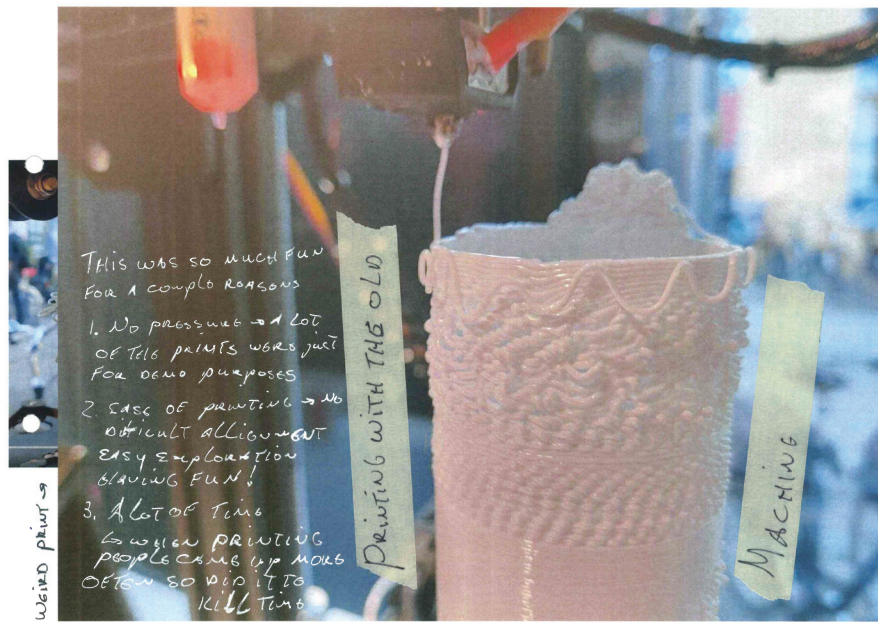 THIS WAS SO MUCH FUN
FOR A COUPLE REASONS
1. NO PRESSURE → A LOT
OF THE PRINTS WERE JUST
FOR DEMO PURPOSES
2. EASE OF PRINTING → NO
DIFICULT ALLIGNMENT
EASY EXPLORATION
HAVING FUN!
3. A LOT OF TIME
↳ WHEN PRINTING
PEOPLE CAME UP MORE
OFTEN SO DID IT TO
KILL TIME
PRINTING WITH THE OLD
MACHINE
WEIRD PRINT →